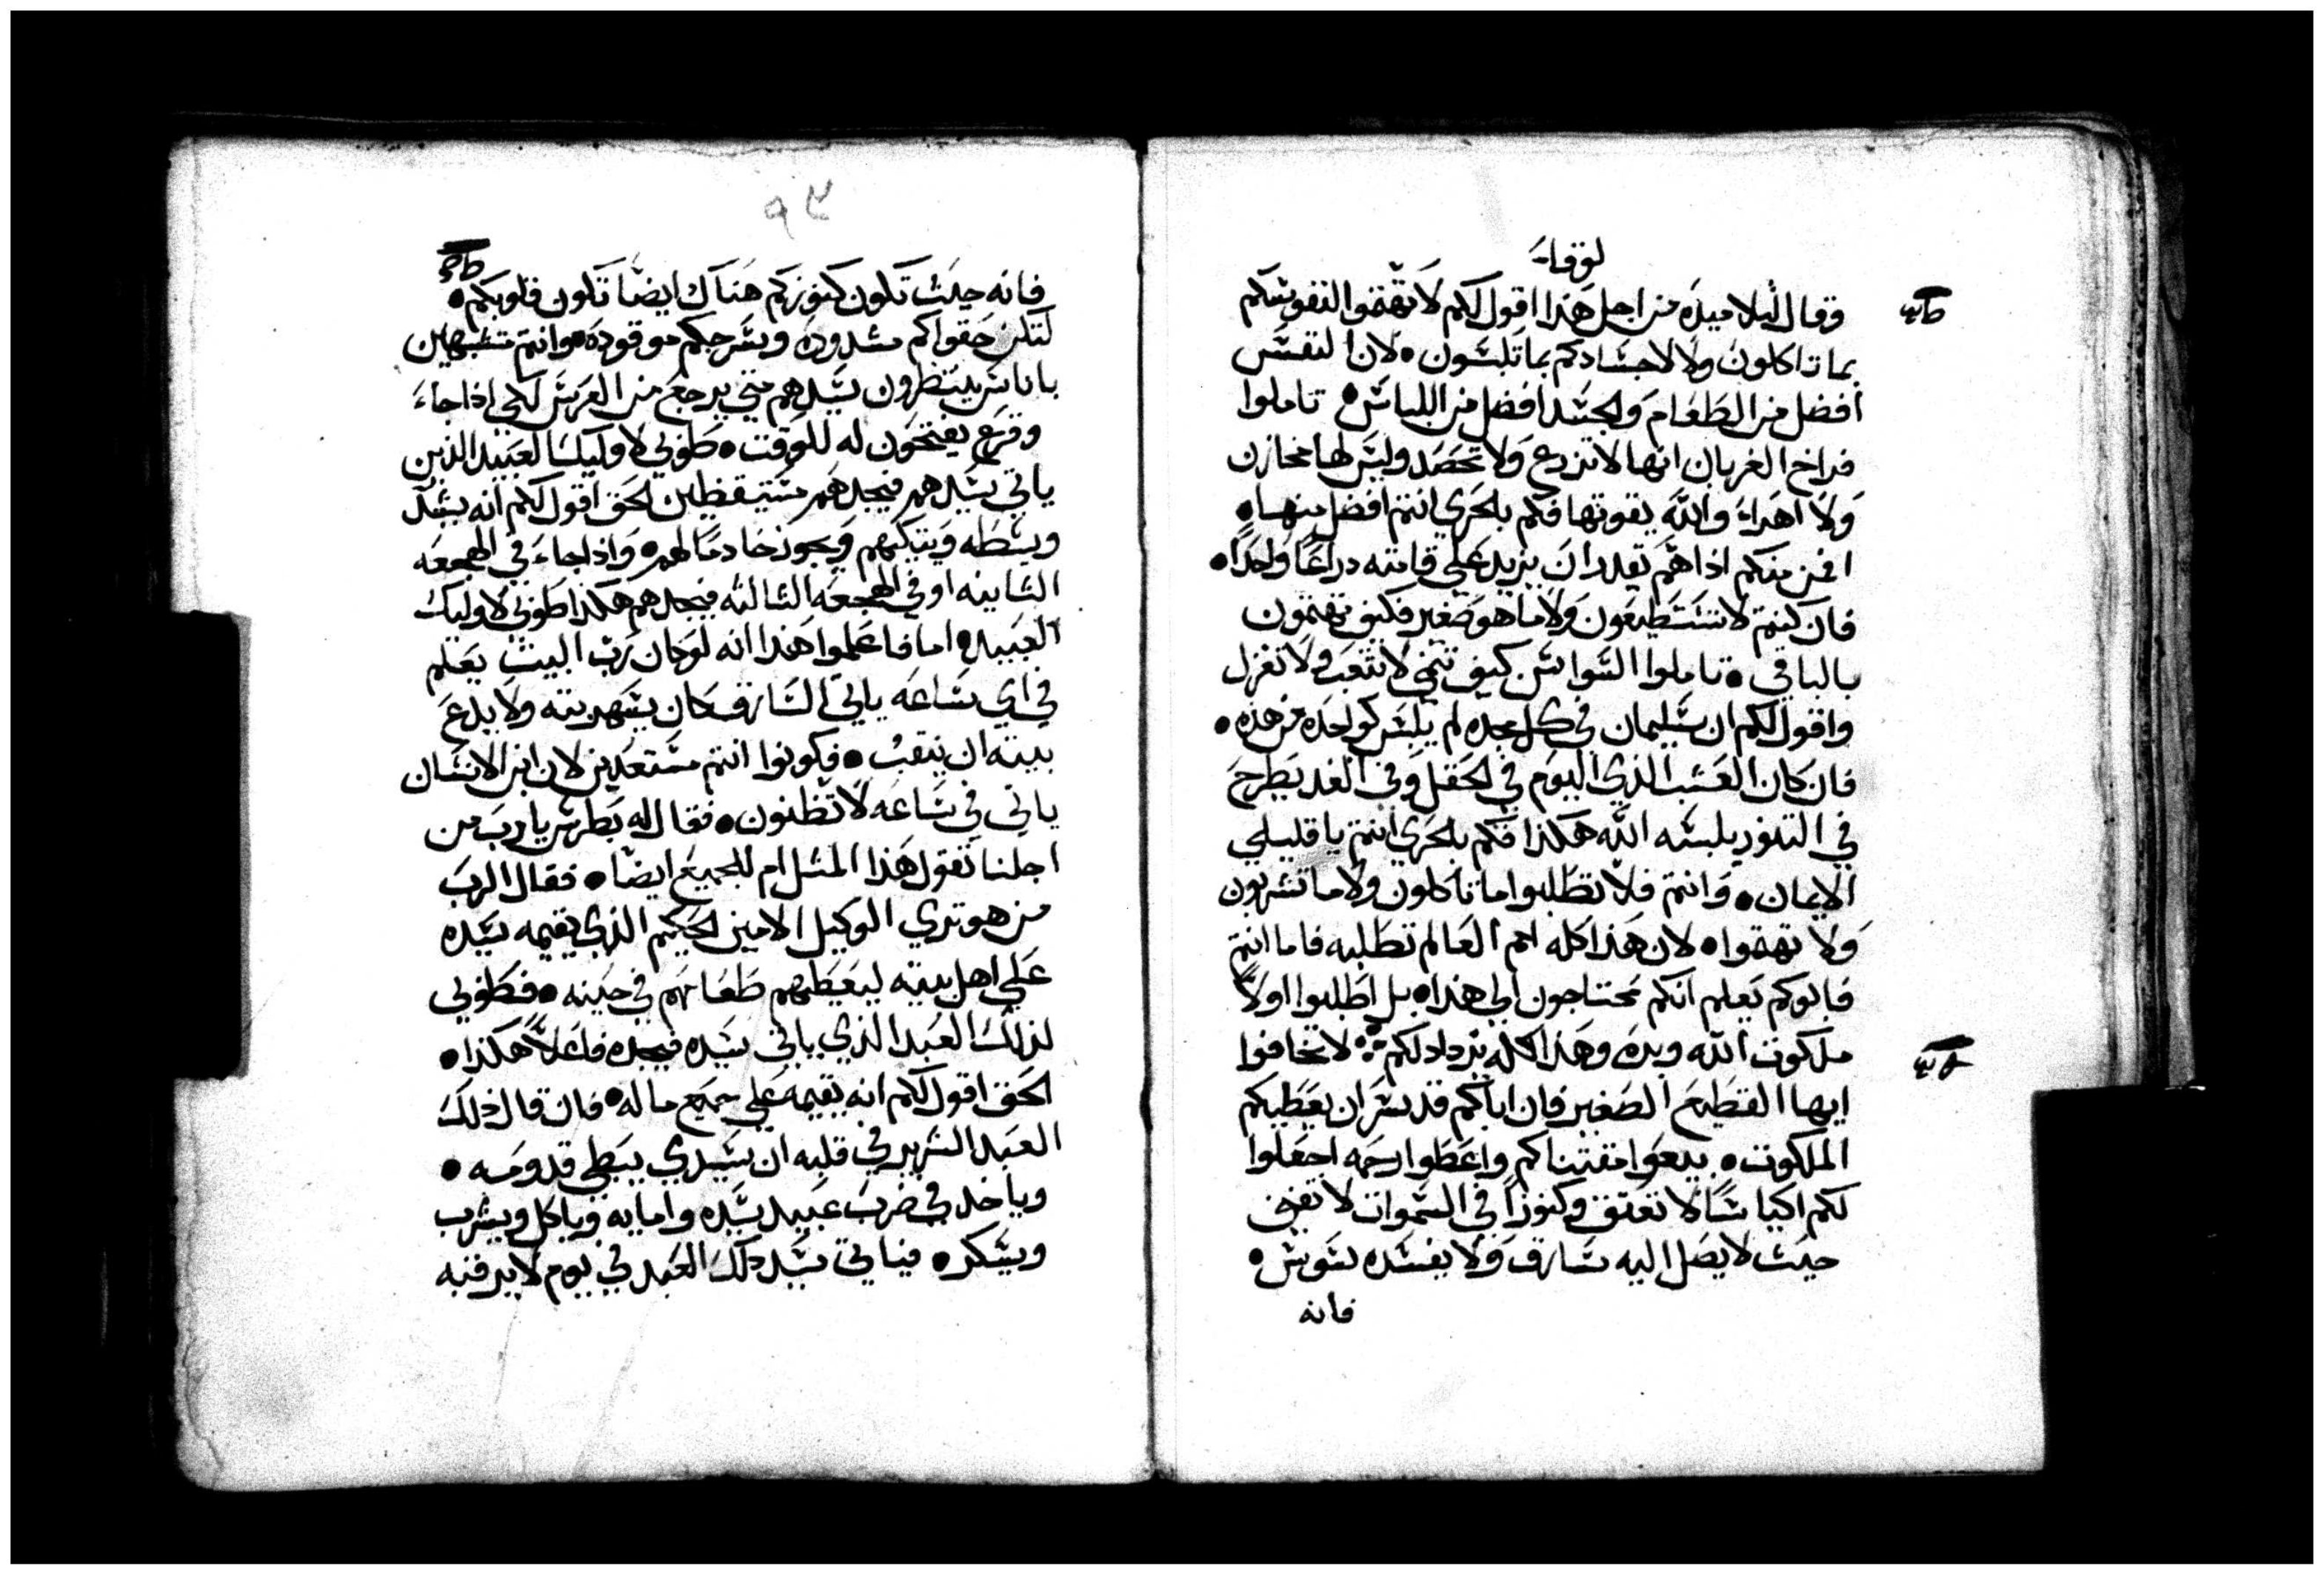 لوقا
وقال لتلاميذه من اجل هذا اقول لكم لا تهتموا لنفوسكم
بما تاكلون ولا لاجسادكم بما تلبسون • لان النفس
افضل من الطعام والجسد افضل من اللباس • تاملوا
فراخ الغربان انها لا تزرع ولا تحصد وليس لها مخازن
ولا اهراء والله يقوتها فكم بالحري انتم افضل منها •
افمن منكم اذا هم يقدر ان يزيد علي قامته دراعا واحدا •
فان كنتم لا تستطيعون ولا ما هو صغير فكيف تهتمون
بالباقي • تاملوا السواسن كيف تنمي لا تتعب ولا تغزل
واقول لكم ان سليمان في كل مجده لم يلبس كواحده من هذه •
فان كان العشب الذي اليوم في الحقل وفي الغد يطرح
في التنور يلبسه الله هكذا فكم بالحري انتم يا قليلي
الايمان • وانتم فلا تطلبوا ما تاكلون ولا ما تشربون
ولا تهتموا • لان هذا كله امم العالم تطلبه فاما انتم
فابوكم يعلم انكم محتاجون الي هذا • بل اطلبوا اولا
ملكوت الله وبره وهذا كله يزداد لكم ❖ لا تخافوا
ايها القطيع الصغير فان اباكم قد سر ان يعطيكم
الملكوت • بيعوا مقتناكم واعطوا رحمه اجعلوا
لكم اكياسا لا تعتق وكنوزا في السموات لا تفني
حيث لا يصل اليه سارق ولا يفسده سوس •
فانه
٩٣
فانه حيث تكون كنوزكم هناك ايضا تكون قلوبكم •
لتكن حقواكم مشدوده وسرجكم موقوده • وانتم متشبهين
باناس ينتظرون سيدهم متي يرجع من العرس لكي اذا جاء
وقرع يفتحون له للوقت • طوبي لاوليك العبيد الذين
ياتي سيدهم فيجدهم مستيقظين الحق اقول لكم انه يشد
وسطه ويتكيهم ويجوز خادما لهم • واذا جاء في الهجعه
الثانيه او في الهجعه الثالثه فيجدهم هكذا طوبي لاوليك
العبيد • اما فاعلموا هذا انه لو كان رب البيت يعلم
في اي ساعه ياتي السارق كان يسهر بيته ولا يدع
بيته ان ينقب • فكونوا انتم مستعدين لان ابن الانسان
ياتي في ساعه لا تظنون • فقال له بطرس يا رب من
اجلنا تقول هذا المثل ام للجميع ايضا • فقال الرب
من هو تري الوكيل الامين الحكيم الذي يقيمه سيده
علي اهل بيته ليعطيهم طعامهم في حينه • فطوبي
لذلك العبد الذي ياتي سيده فيجده فاعلا هكذا •
الحق اقول لكم انه يقيمه علي جميع ماله • فان قال ذلك
العبد الشرير في قلبه ان سيدي يبطي قدومه •
وياخد في ضرب عبيد سيده وامايه وياكل ويشرب
ويسكر • فياتي سيد دلك العبد في يوم لا يرقبه